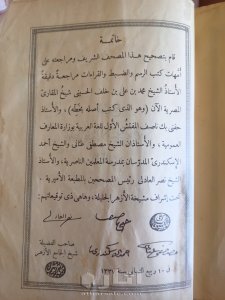 خاتمة
قام بتصحيح هذا المصحف الشريف ومراجعته على
أمهات كتب الرسم والضبط والقراءات مراجعة دقيقة
الأستاذ الشيخ محمد بن على بن خلف الحسينى شيخ المقارئ
المصرية الآن (وهو الذى كتب أصله بخطه)، والأستاذ
حفنى بك ناصف المفتش الأول للغة العربية بوزارة المعارف
العمومية، والأستاذان الشيخ مصطفى عنانى والشيخ أحمد
الإسكندرى المدرّسان بمدرسة المعلمين الناصرية، والأستاذ
الشيخ نصر العادلى رئيس المصححين بالمطبعة الأميرية.
تحت إشراف مشيخة الأزهر الجليلة، وهاهى ذى توقيعاتهم:
نصر العادلى
صاحب الفضيلة
شيخ الجامع الأزهر
فى ١٠ ربيع الثانى سنة ١٣٣٧